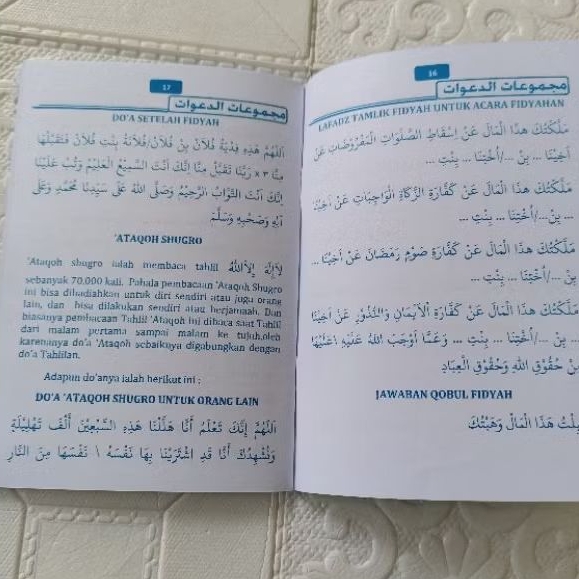 16
مجموعات الدعوات
LAFADZ TAMLIK FIDYAH UNTUK ACARA FIDYAHAN
مَلَّكْتُكَ هذَا الْمَالَ عَنْ إِسْقَاطِ الصَّلَوَاتِ الْمَفْرُوْضَاتِ عَنْ
اَخِيْنَا ... بِنْ .../اُخْتِنَا ... بِنْتِ ...
مَلَّكْتُكَ هذَا الْمَالَ عَنْ كَفَّارَةِ الزَّكَاةِ الْوَاجِبَاتِ عَنْ اَخِيْنَا
... بِنْ.../اُخْتِنَا ... بِنْتِ ...
مَلَّكْتُكَ هذَا الْمَالَ عَنْ كَفَّارَةِ صَوْمِ رَمَضَانَ عَنْ اَخِيْنَا ...
بِنْ .../اُخْتِنَا ... بِنْتِ ...
مَلَّكْتُكَ هذَا الْمَالَ عَنْ كَفَّارَةِ اْلاَيْمَانِ وَالنُّذُوْرِ عَنْ اَخِيْنَا
... بِنْ .../اُخْتِنَا ... بِنْتِ ... وَعَمَّا اَوْجَبَ اللهُ عَلَيْهِ \عَلَيْهَا
مِنْ حُقُوْقِ اللهِ وَحُقُوْقِ الْعِبَادِ
JAWABAN QOBUL FIDYAH
هَذَا الْمَالَ وَهَبْتُكَ
17
مجموعات الدعوات
DO'A SETELAH FIDYAH
اَللّٰهُمَّ هَذِهِ فِدْيَةُ فُلاَنْ بِنْ فُلاَنْ/فُلاَنَةْ بِنْتِ فُلاَنْ فَتَقَبَّلْهَا
مِنَّا ×٣ رَبَّنَا تَقَبَّلْ مِنَّا إِنَّكَ أَنْتَ السَّمِيْعُ الْعَلِيْمُ وَتُبْ عَلَيْنَا
إِنَّكَ أَنْتَ التَّوَّابُ الرَّحِيْمُ وَصَلَّى اللهُ عَلَى سَيِّدِنَا مُحَمَّدٍ وَعَلَى
آلِهِ وَصَحْبِهِ وَسَلَّمَ
'ATAQOH SHUGRO
'Ataqoh shugro ialah membaca tahlil لاَاِلَهَ اِلاَّاللهُ
sebanyak 70.000 kali. Pahala pembacaan 'Ataqoh Shugro
ini bisa dihadiahkan untuk diri sendiri atau juga orang
lain, dan bisa dilakukan sendiri atau berjamaah. Dan
biasanya pembacaan Tahlil 'Ataqoh ini dibaca saat Tahlil
dari malam pertama sampai malam ke tujuh,oleh
karenanya do'a 'Ataqoh sebaiknya digabungkan dengan
do'a Tahlilan.
Adapun do'anya ialah berikut ini :
DO'A 'ATAQOH SHUGRO UNTUK ORANG LAIN
اَللّٰهُمَّ إِنَّكَ تَعْلَمُ أَنَّا هَلَّلْنَا هَذِهِ السَّبْعِيْنَ أَلْفَ تَهْلِيْلَةٍ
وَنُشْهِدُكَ أَنَّا قَدِ اشْتَرَيْنَا بِهَا نَفْسَهُ \ نَفْسَهَا مِنَ النَّارِ